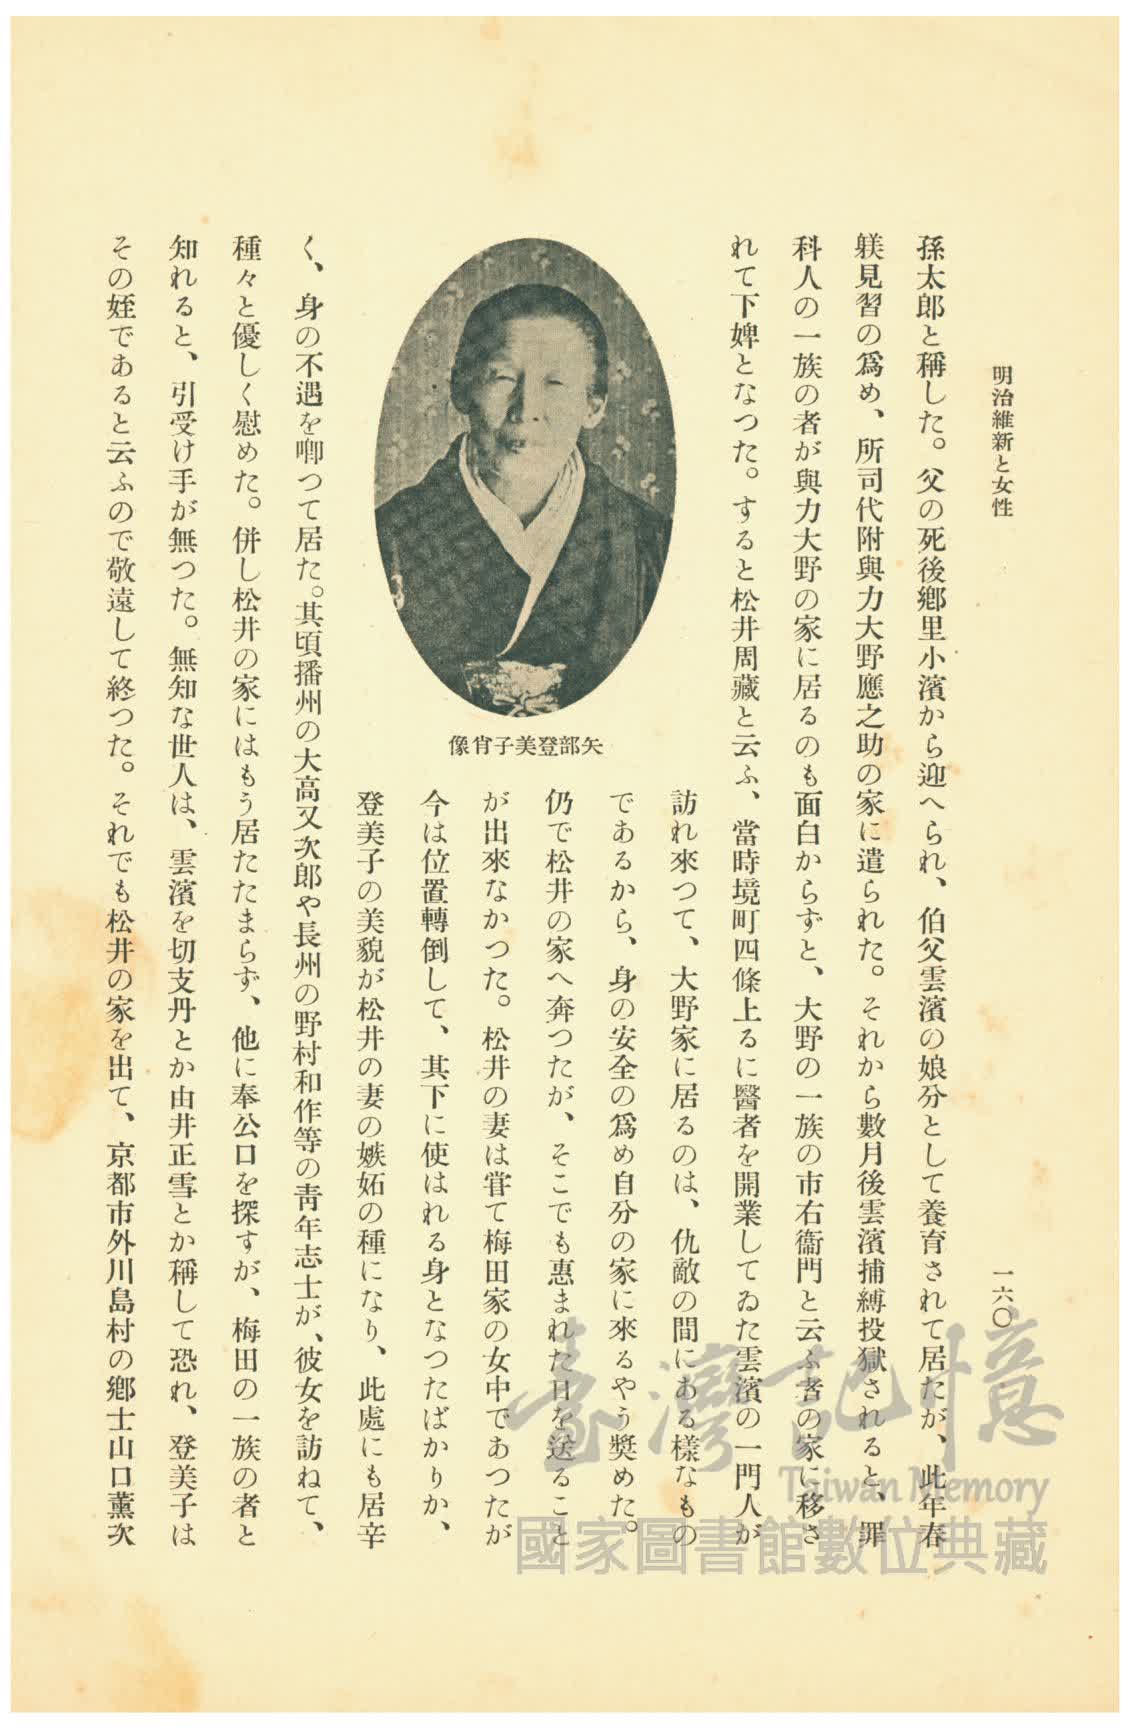 明治維新と女性
一六〇
孫太郎と稱した。父の死後鄕里小濱から迎へられ、伯父雲濱の娘分として養育されて居たが、此年春
躾見習の爲め、所司代附與力大野應之助の家に遣られた。それから數月後雲濱捕縛投獄されると、罪
科人の一族の者が與力大野の家に居るのも面白からずと、大野の一族の市右衞門と云ふ者の家に移さ
れて下婢となつた。すると松井周藏と云ふ、當時境町四條上るに醫者を開業してゐた雲濱の一門人が
訪れ來つて、大野家に居るのは、仇敵の間にある樣なもの
であるから、身の安全の爲め自分の家に來るやう奬めた。
仍で松井の家へ奔つたが、そこでも惠まれた日を送ること
が出來なかつた。松井の妻は甞て梅田家の女中であつたが
今は位置轉倒して、其下に使はれる身となつたばかりか、
登美子の美貌が松井の妻の嫉妬の種になり、此處にも居辛
矢部登美子肖像
く、身の不遇を喞つて居た。其頃播州の大高又次郎や長州の野村和作等の靑年志士が、彼女を訪ねて、
種々と優しく慰めた。併し松井の家にはもう居たたまらず、他に奉公口を探すが、梅田の一族の者と
知れると、引受け手が無つた。無知な世人は、雲濱を切支丹とか由井正雪とか稱して恐れ、登美子は
その姪であると云ふので敬遠して終つた。それでも松井の家を出て、京都市外川島村の鄕士山口薰次
臺灣記憶
Taiwan Memory
國家圖書館數位典藏